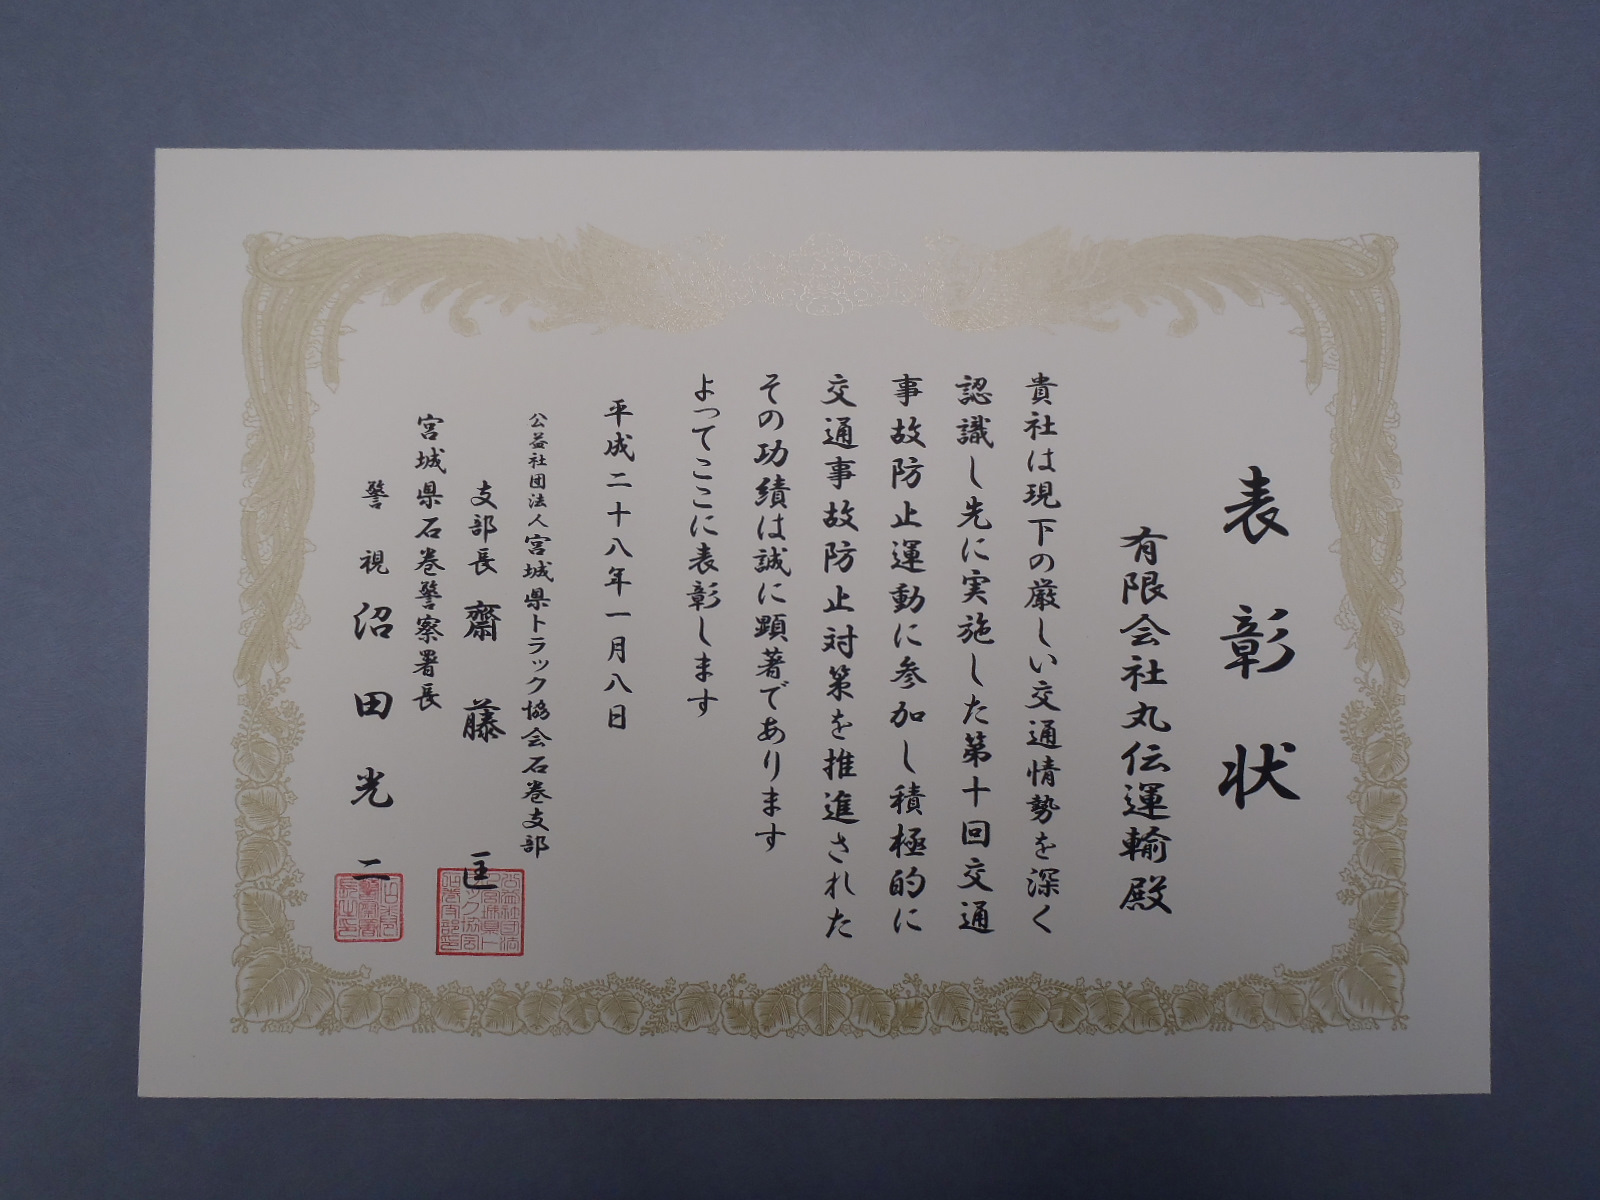 表彰状
有限会社丸伝運輸殿
貴社は現下の厳しい交通情勢を深く
認識し先に実施した第十回交通
事故防止運動に参加し積極的に
交通事故防止対策を推進された
その功績は誠に顕著であります
よってここに表彰します
平成二十八年一月八日
公益社団法人宮城県トラック協会石巻支部
支部長 齋藤 匡
宮城県石巻警察署長
警視 沼田光二